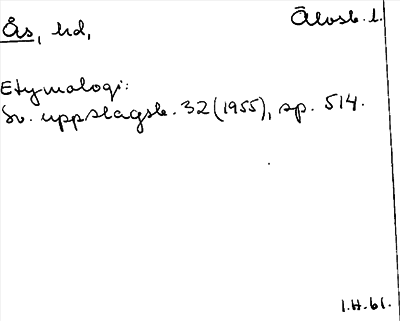 Ås, hd, Älvsb. l.
Etymologi:
Sv. uppslagsb. 32 (1955), sp. 514.
I.H. 61.